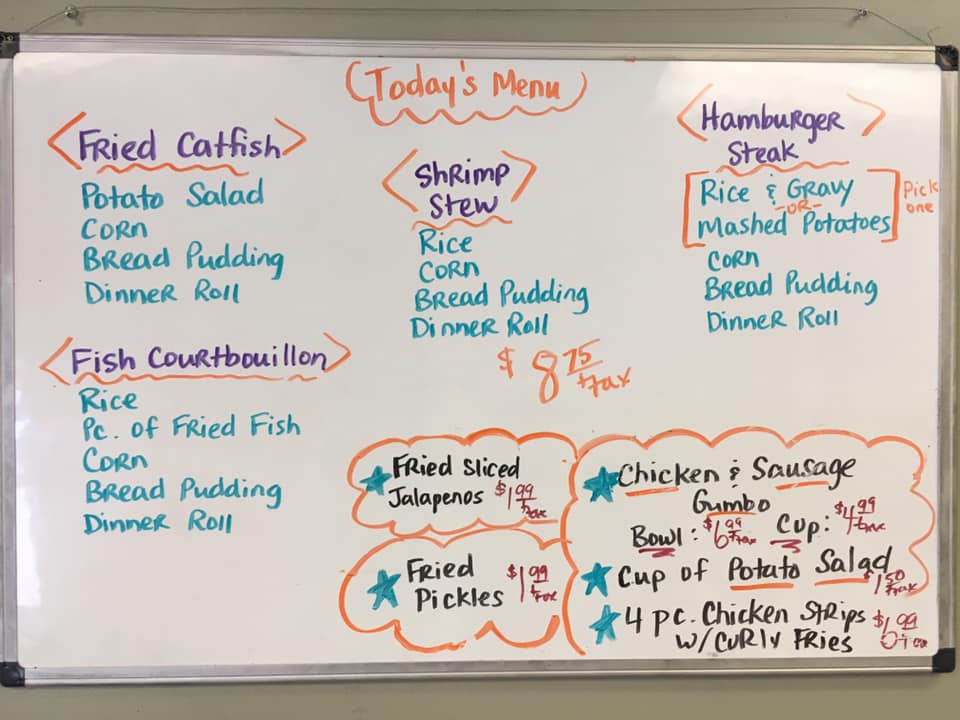 Today's Menu
Fried Catfish
Potato Salad
Corn
Bread Pudding
Dinner Roll
Fish Courtbouillon
Rice
Pc. of Fried Fish
Corn
Bread Pudding
Dinner Roll
Shrimp
Stew
Rice
Corn
Bread Pudding
Dinner Roll
$8.75 + tax
Hamburger
Steak
Rice & Gravy
-OR-
Mashed Potatoes
Pick
one
Corn
Bread Pudding
Dinner Roll
Fried Sliced
Jalapenos $1.99 + tax
Fried
Pickles $1.99 + tax
Chicken & Sausage
Gumbo
Bowl: $6.99 + tax Cup: $4.99 + tax
Cup of Potato Salad
$1.50 + tax
4 pc. Chicken Strips
w/ Curly Fries